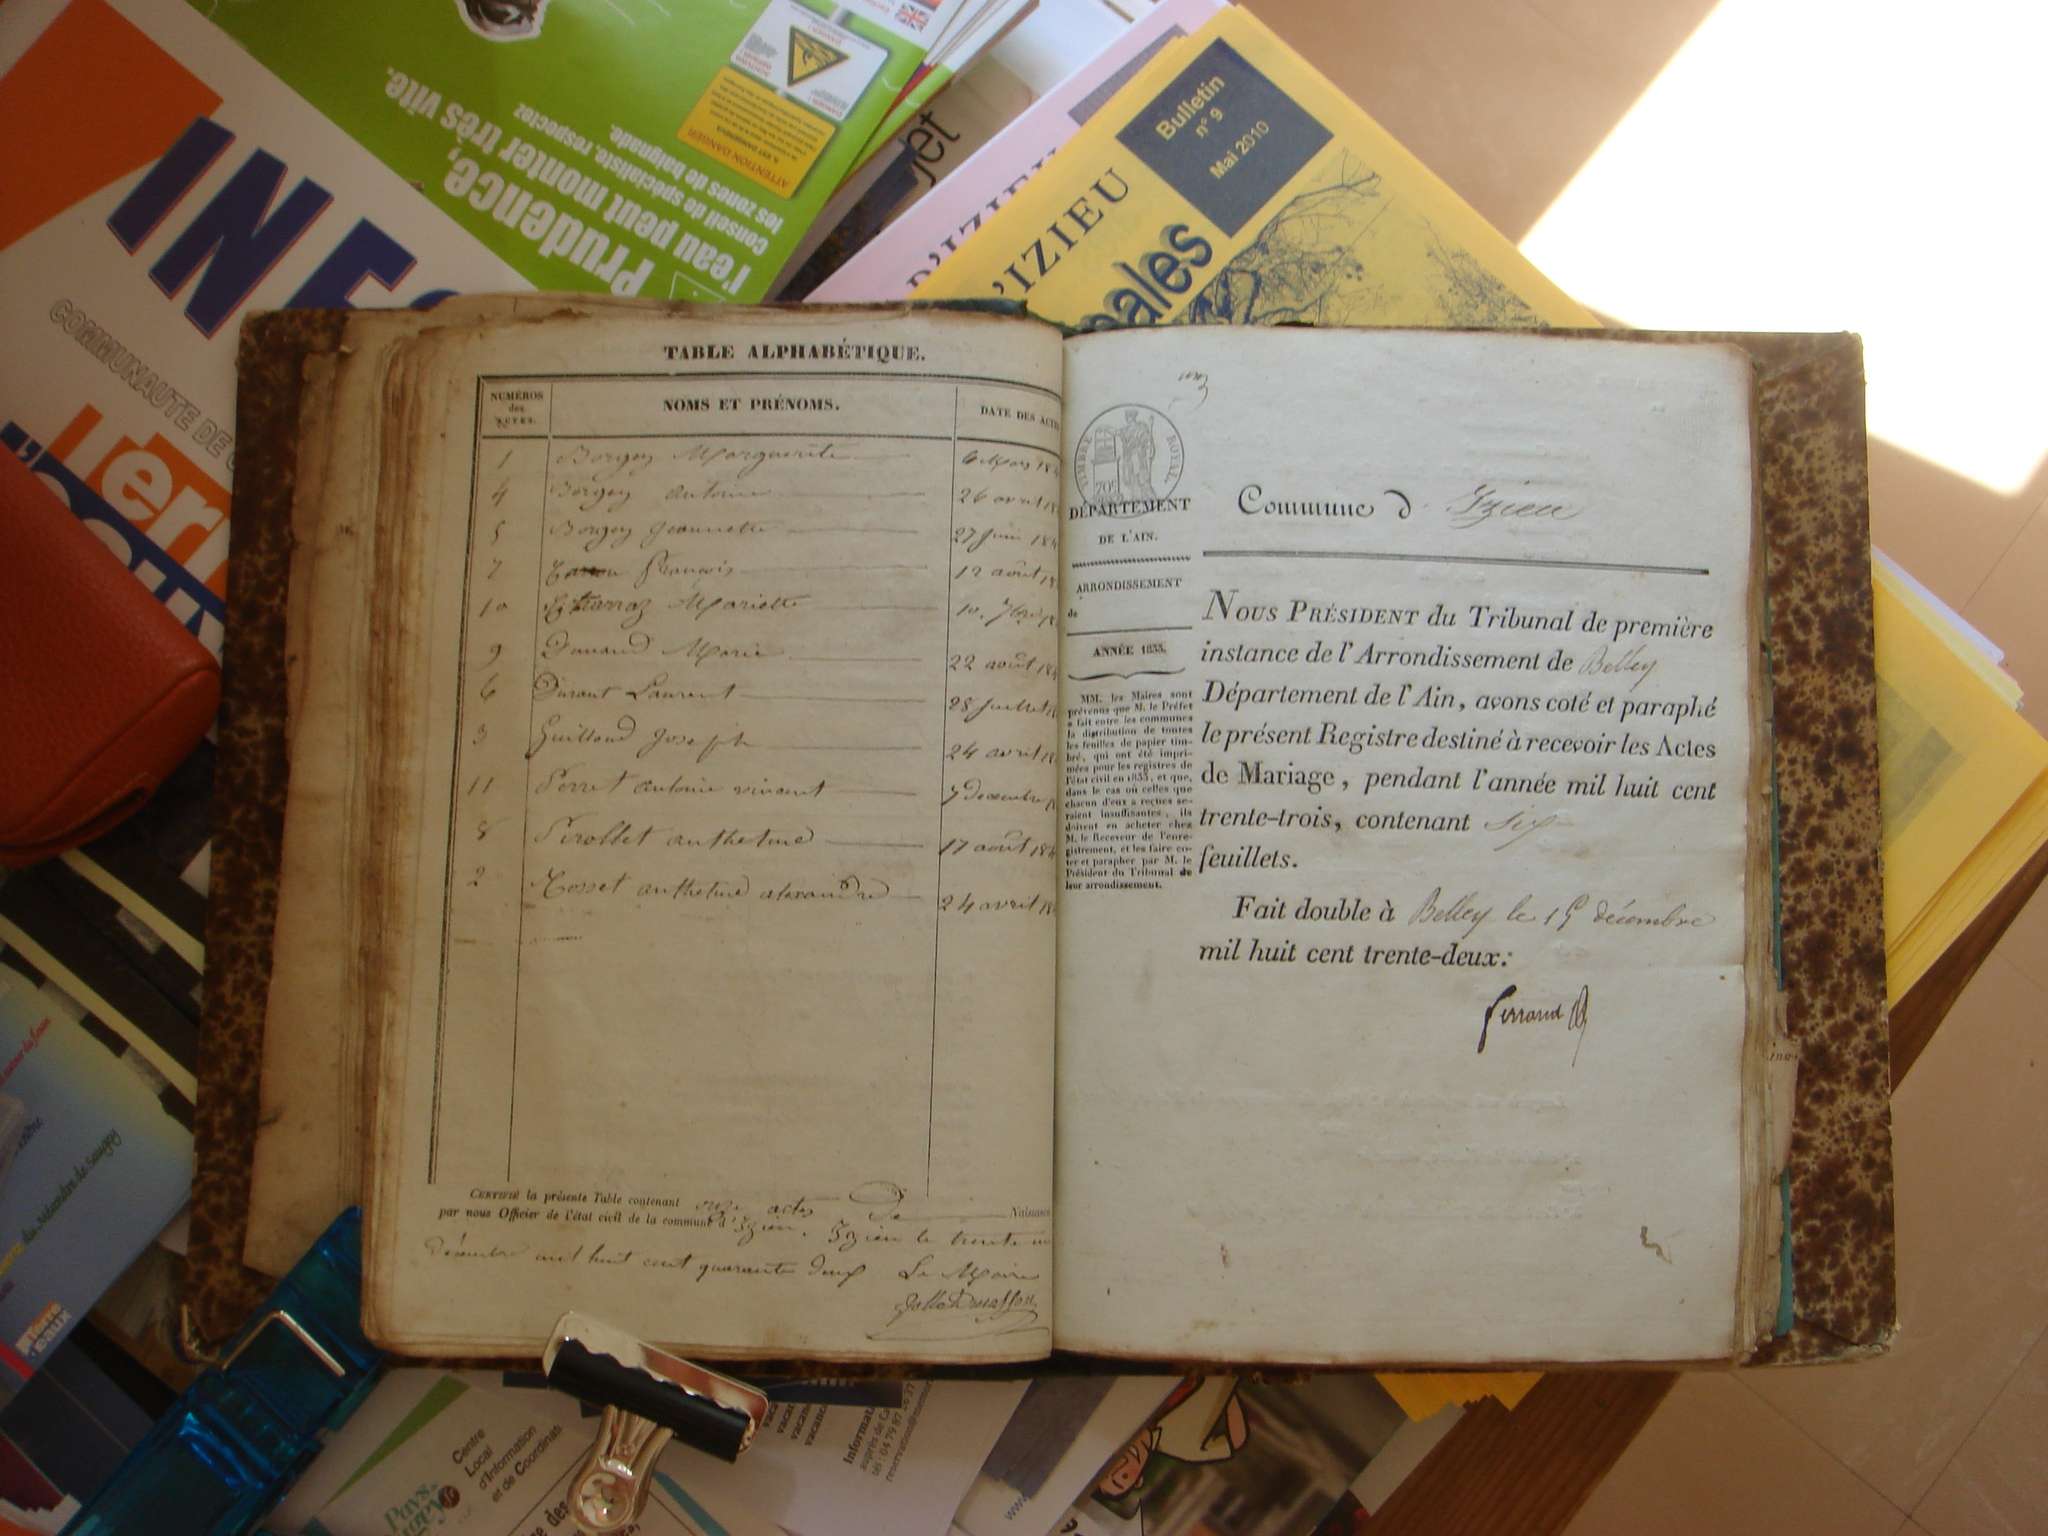 INFO
COMMUNAUTE DE
Prudence,
l'eau peut monter très vite.
conseil de spécialiste, respectez
les zones de baignade.
ATTENTION DANGER
Bulletin
n° 9
Mai 2010
D'IZIEU
'IZIEU
pales
TABLE ALPHABÉTIQUE.
NUMÉROS des ACTES. NOMS ET PRÉNOMS. DATE DES ACTES
1 Borgey Marguerite 6 Mars 18
4 Borgey antoine 26 avril 18
5 Borgey Jeannette 27 Juin 184
7 François 12 août 18
10 Mariette 10. 7bre 18
9 Dunand Marie 22 août 184
6 Durant Laurent 28 Juillet 18
3 Guilland Joseph 24 avril 18
11 Perret antoine vincent 7 Decembre 18
8 Pirollet anthelme 17 août 184
2 Tosset anthelme alexandre 24 avril 184
CERTIFIÉ la présente Table contenant onze actes De Naissance
par nous Officier de l'état civil de la commune d'Izieu. Izieu le trente un
décembre mil huit cent quarante deux Le Maire
TIMBRE ROYAL
70c
DÉPARTEMENT
DE L'AIN.
ARRONDISSEMENT
de
ANNÉE 1833.
MM. les Maires sont
prévenus que M. le Préfet
a fait entre les communes
la distribution de toutes
les feuilles de papier tim-
bré, qui ont été impri-
mées pour les registres de
l'état civil en 1833, et que,
dans le cas où celles que
chacun d'eux a reçues se-
raient insuffisantes, ils
doivent en acheter chez
M. le Receveur de l'enre-
gistrement, et les faire co-
ter et parapher par M. le
Président du Tribunal de
leur arrondissement.
Commune d Izieu
NOUS PRÉSIDENT du Tribunal de première
instance de l'Arrondissement de Belley
Département de l'Ain, avons coté et paraphé
le présent Registre destiné à recevoir les Actes
de Mariage, pendant l'année mil huit cent
trente-trois, contenant six
feuillets.
Fait double à Belley le 15 décembre
mil huit cent trente-deux.
Ferrand
Terre
d'eaux
Centre
Local
d'Information
et de Coordinati
Informat
auprès de Ca